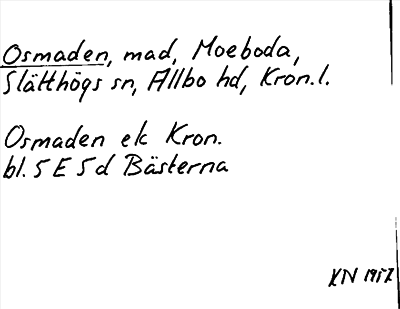 Osmaden, mad, Moeboda,
Slätthögs sn, Allbo hd, Kron.l.
Osmaden ek Kron.
bl. 5 E 5d Bästerna
KN 1957